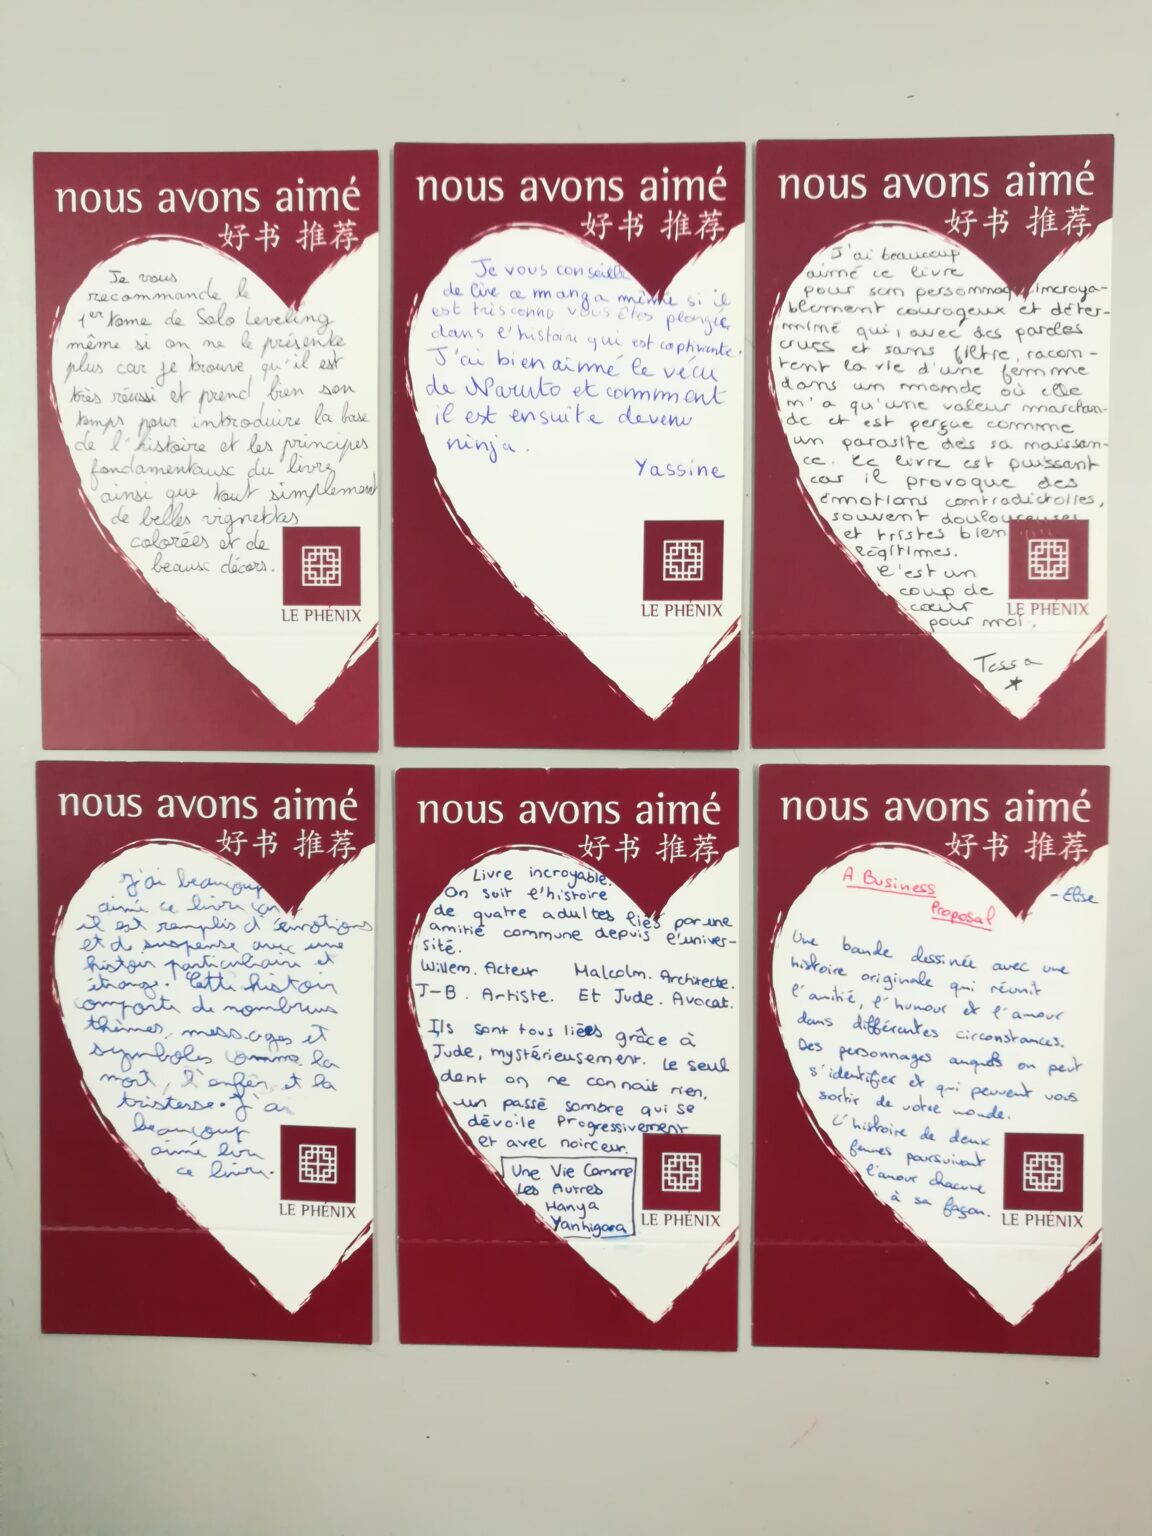 nous avons aimé
好书 推荐
Je vous
recommande le
1er tome de Solo Leveling
même si on ne le présente
plus car je trouve qu'il est
très réussi et prend bien son
temps pour introduire la base
de l'histoire et les principes
fondamentaux du livre
ainsi que tout simplement
de belles vignettes
colorées et de
beaux décors.
LE PHÉNIX
nous avons aimé
好书 推荐
Je vous conseille
de lire ce manga même si il
est très connu vous êtes plongée
dans l'histoire qui est captivante.
J'ai bien aimé le vécu
de Naruto et comment
il est ensuite devenu
ninja.
Yassine
LE PHÉNIX
nous avons aimé
好书 推荐
J'ai beaucoup
aimé ce livre
pour son personnage incroya-
blement courageux et déter-
miné qui, avec des paroles
crues et sans filtre, racon-
tent la vie d'une femme
dans un monde où elle
n'a qu'une valeur marchan-
de et est perçue comme
un parasite dès sa naissan-
ce. Ce livre est puissant
car il provoque des
émotions contradictoires,
souvent douloureuses
et tristes bien
légitimes.
C'est un
coup de
cœur
pour moi.
Tessa
LE PHÉNIX
nous avons aimé
好书 推荐
J'ai beaucoup
aimé ce livre car
il est remplis d'émotions
et de suspense avec une
histoir particuliaire et
étrange. Cette histoir
comporte de nombreus
thèmes, messages et
symboles comme la
mort, l'enfer, et la
tristesse. J'ai
beaucoup
aimé lire
ce livre.
LE PHÉNIX
nous avons aimé
好书 推荐
Livre incroyable.
On suit l'histoire
de quatre adultes liés par une
amitié commune depuis l'univer-
sité.
Willem. Acteur Malcolm. Architecte.
J-B. Artiste. Et Jude. Avocat.
Ils sont tous liés grâce à
Jude, mystérieusement. Le seul
dont on ne connait rien,
un passé sombre qui se
dévoile progressivement
et avec noirceur.
Une Vie Comme
Les Autres
Hanya
Yanhigara
LE PHÉNIX
nous avons aimé
好书 推荐
A Business
Proposal
- Elise
Une bande dessinée avec une
histoire originale qui réunit
l'amitié, l'humour et l'amour
dans différentes circonstances.
Des personnages auxquels on peut
s'identifier et qui peuvent vous
sortir de votre monde.
L'histoire de deux
femmes poursuivant
l'amour chacune
à sa façon.
LE PHÉNIX